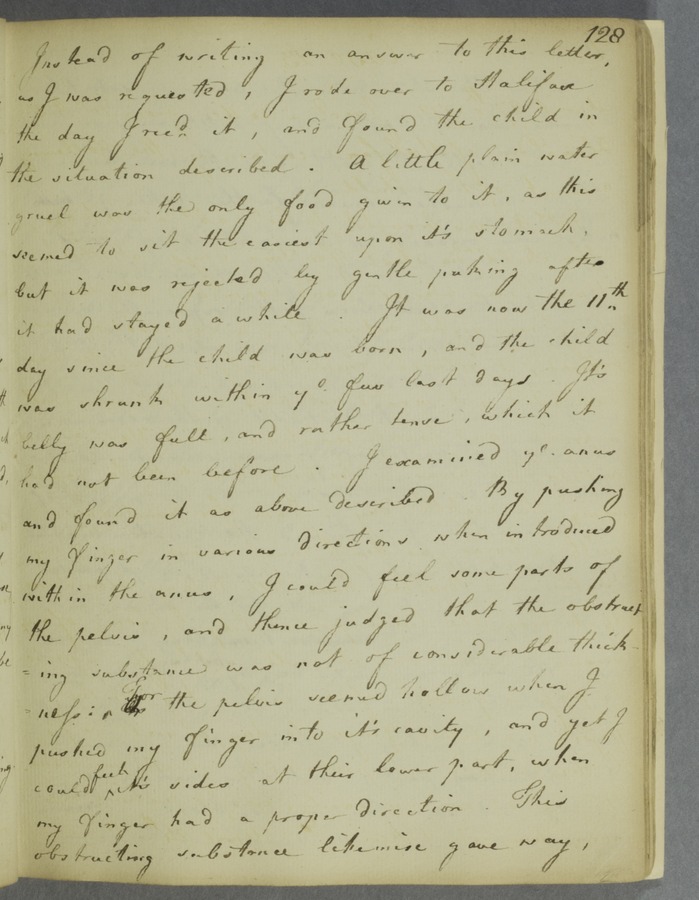 128
Instead of writing an answer to this letter,
as I was requested, I rode over to Halifax
the day I reed it, and found the child in
the situation described. A little plain water
gruel was the only food given to it, as this
seemed to sit the easiest upon it's stomach,
but it was rejected by gentle puking after
it had stayed a while. It was now the 11th
day since the child was born, and the child
was shrunk within ye few last days. It's
belly was full, and rather tense, which it
had not been before. I examined ye anus
and found it as above described. By pushing
my finger in various directions when introduced
within the anus, I could feel some parts of
the pelvis, and thence judged that the obstruct
=ing substance was not of considerable thick-
=ness; For the pelvis seemed hollow when I
pushed my finger into it's cavity, and yet I
could feel it's sides at their lower part, when
my finger had a proper direction. This
obstructing substance likewise gave way,